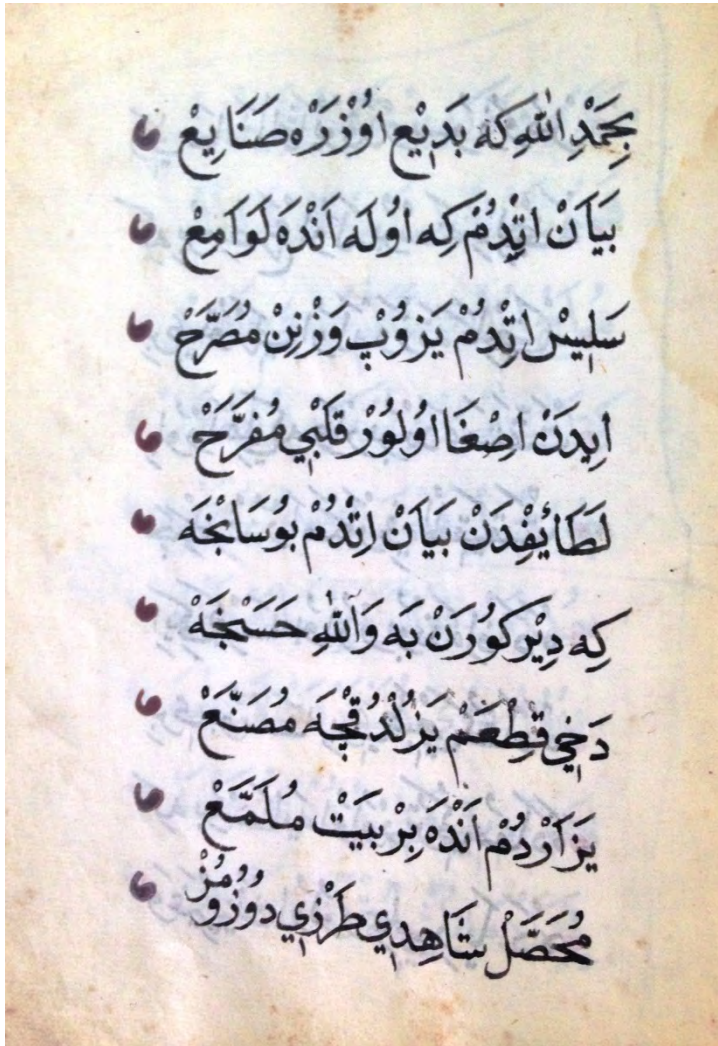 بِحَمْدِ اللّٰهِ كَه بَدِيْع اوُزْرَه صَنَايِعْ
بَيَانْ اتِدُمْ كِه اوُلَه اَنْدَه لَوَامِعْ
سَلِيسْ اتِدُمْ يَزوُبْ وَزْنِنْ مُصَرَّحْ
ايِدَنْ اصِغَا اوُلوُرْ قَلْبِي مُفَرَّحْ
لَطَائِفْدَنْ بَيَانْ اتِدُمْ بوُ سَانِحَه
كِه دِيْر كوُرَنْ بَه وَاللّٰهِ حَسَنْجَه
دَخِي قِطْعَمْ يَزُلْدُقْچَه مُصَنَّعْ
يَزَارْدُمْ اَنْدَه بِرْ بَيَتْ مُلَمَّعْ
مُحَصَّلْ شَاهِدِي طَرْزِي دوُزُوُمُزْ